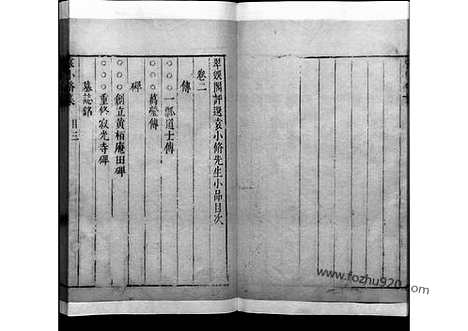 翠娛閣評選袁小脩先生小品目次
卷二
傳
○○○一瓢道士傳
○○○萬瑩傳
碑
○○創立黃柏庵田碑
○○○重修寂光寺碑
墓誌銘
袁小脩集 目 三
www.fozhu920.com